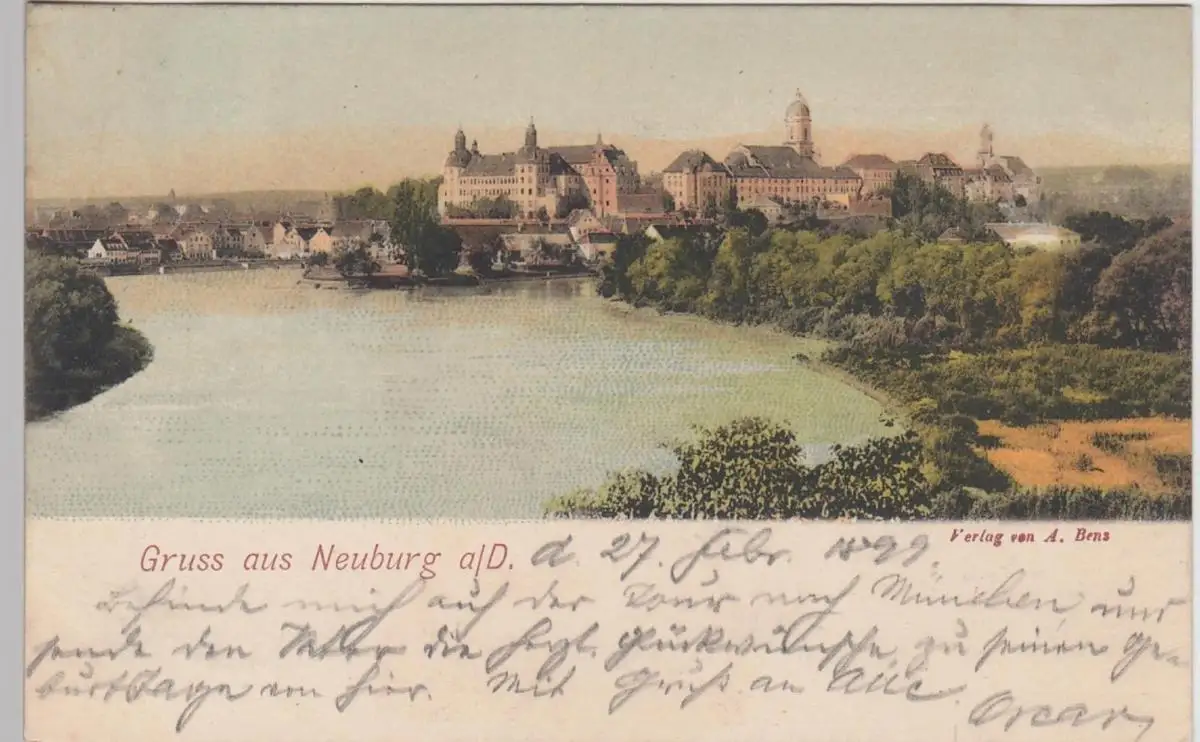 Gruss aus Neuburg a/D. d. 27. Febr. 1899.
Verlag von A. Benz
Befinde mich auf der Tour nach München und
sende den Vater die herzl. Glückwünsche zu seinen Ge-
burtstage von hier. Mit Gruß an Alle
Oscar